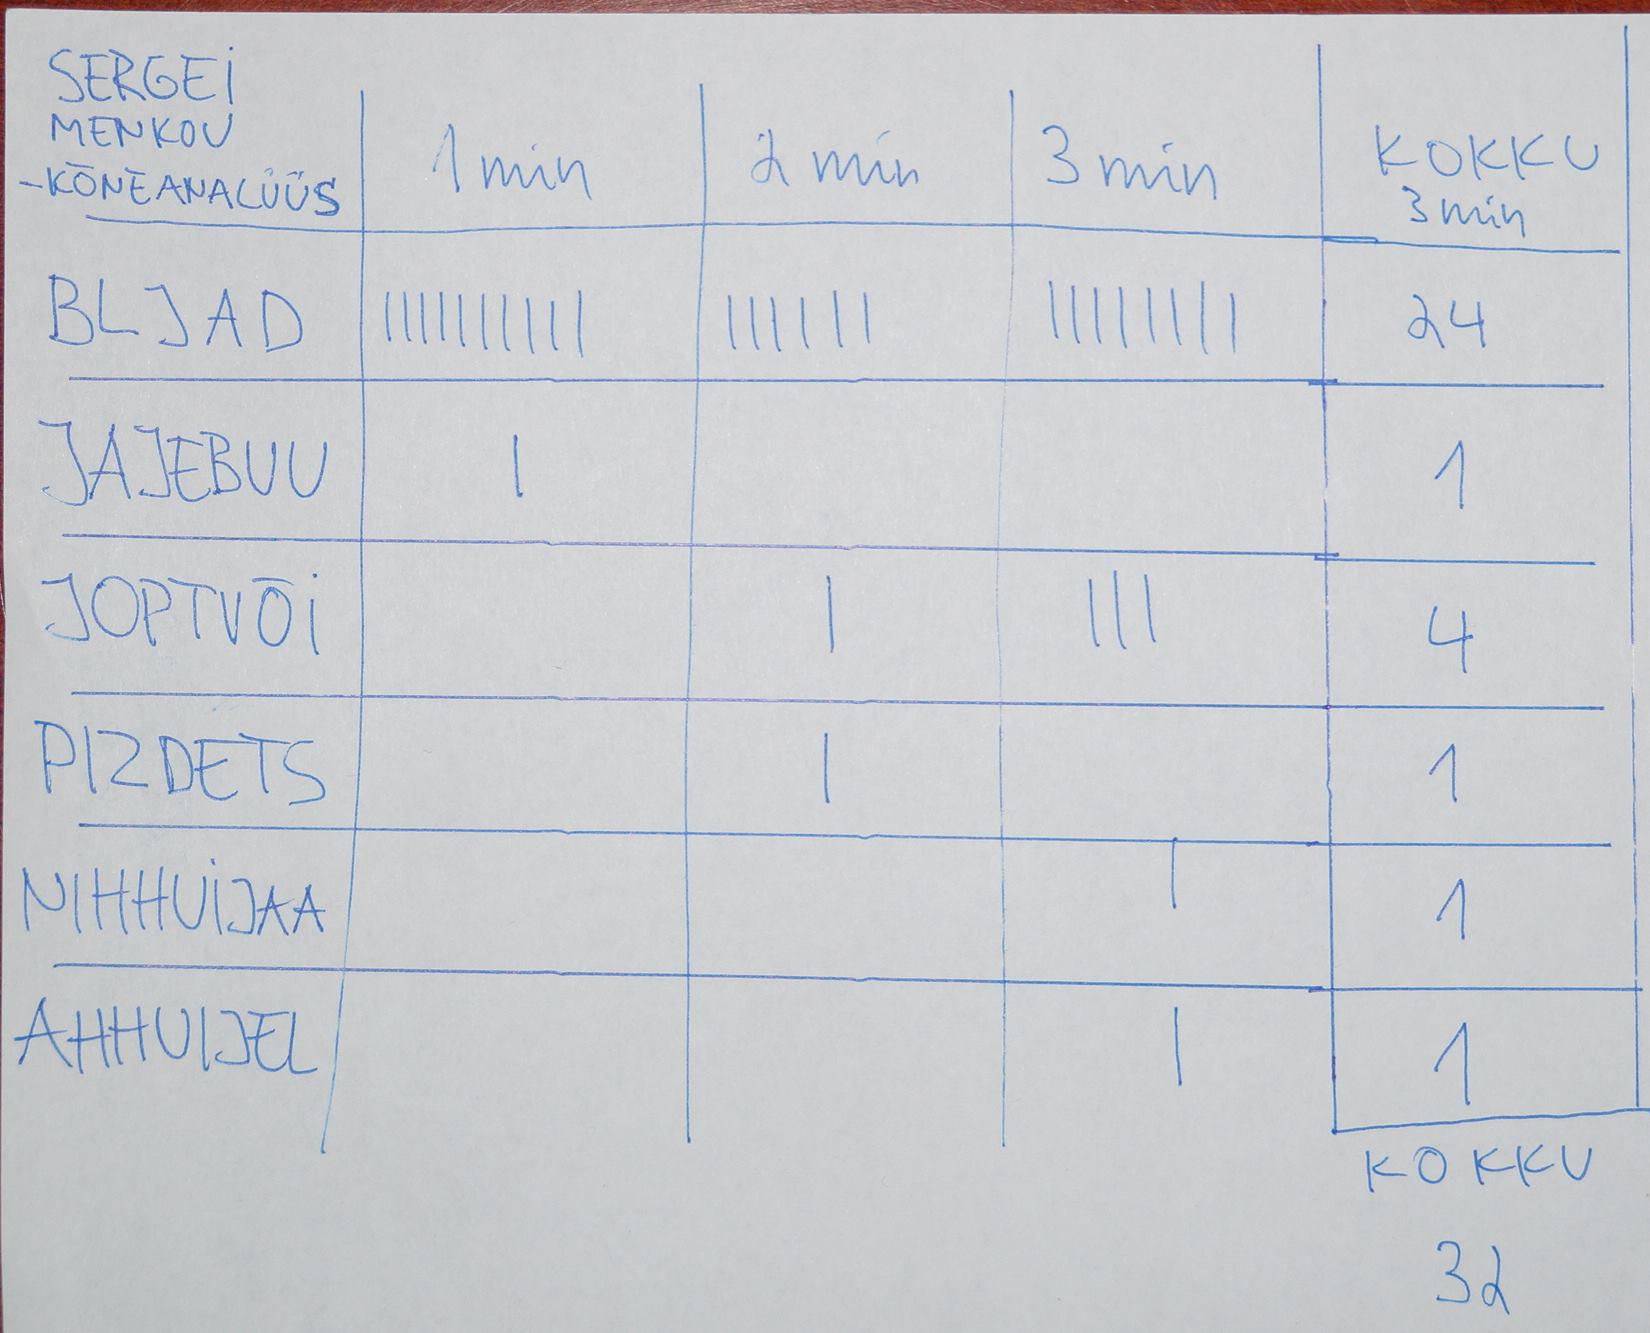 SERGEI
MENKOV
-KÕNEANALÜÜS
1 min
2 min
3 min
KOKKU
3 min
BLJAD |||||||||| |||||| |||||||| 24
JAJEBUU | 1
JOPTVÕI | ||| 4
PIZDETS | 1
NIHHUIJAA | 1
AHHUIJEL | 1
KOKKU
32